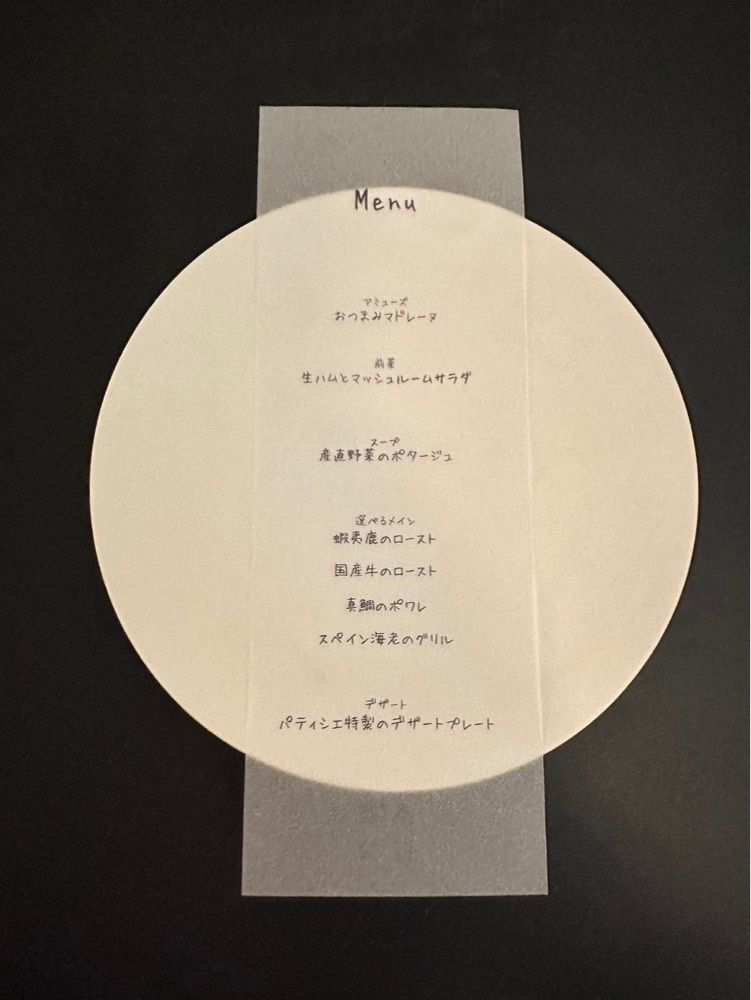 Menu
アミューズ
おつまみマドレーヌ
前菜
生ハムとマッシュルームサラダ
スープ
産直野菜のポタージュ
選べるメイン
蝦夷鹿のロースト
国産牛のロースト
真鯛のポワレ
スペイン海老のグリル
デザート
パティシエ特製のデザートプレート